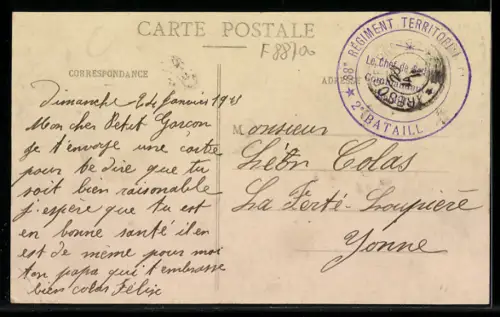 CARTE POSTALE
F 88/00
CORRESPONDANCE
ADRESSE
88e RÉGIMENT TERRITORIAL
Le Chef de
2e BATAILL
Dimanche 2 de Janvier 19
Mon cher Petit Garçon
Je t'envoye une carte
pour te dire que tu
soit bien raisonable
j'espère que tu est
en bonne santé il en
est de même pour moi
ton papa qui t'embrasse
bien colas Félix
Monsieur
Léon Colas
La Ferté-Loupière
Yonne